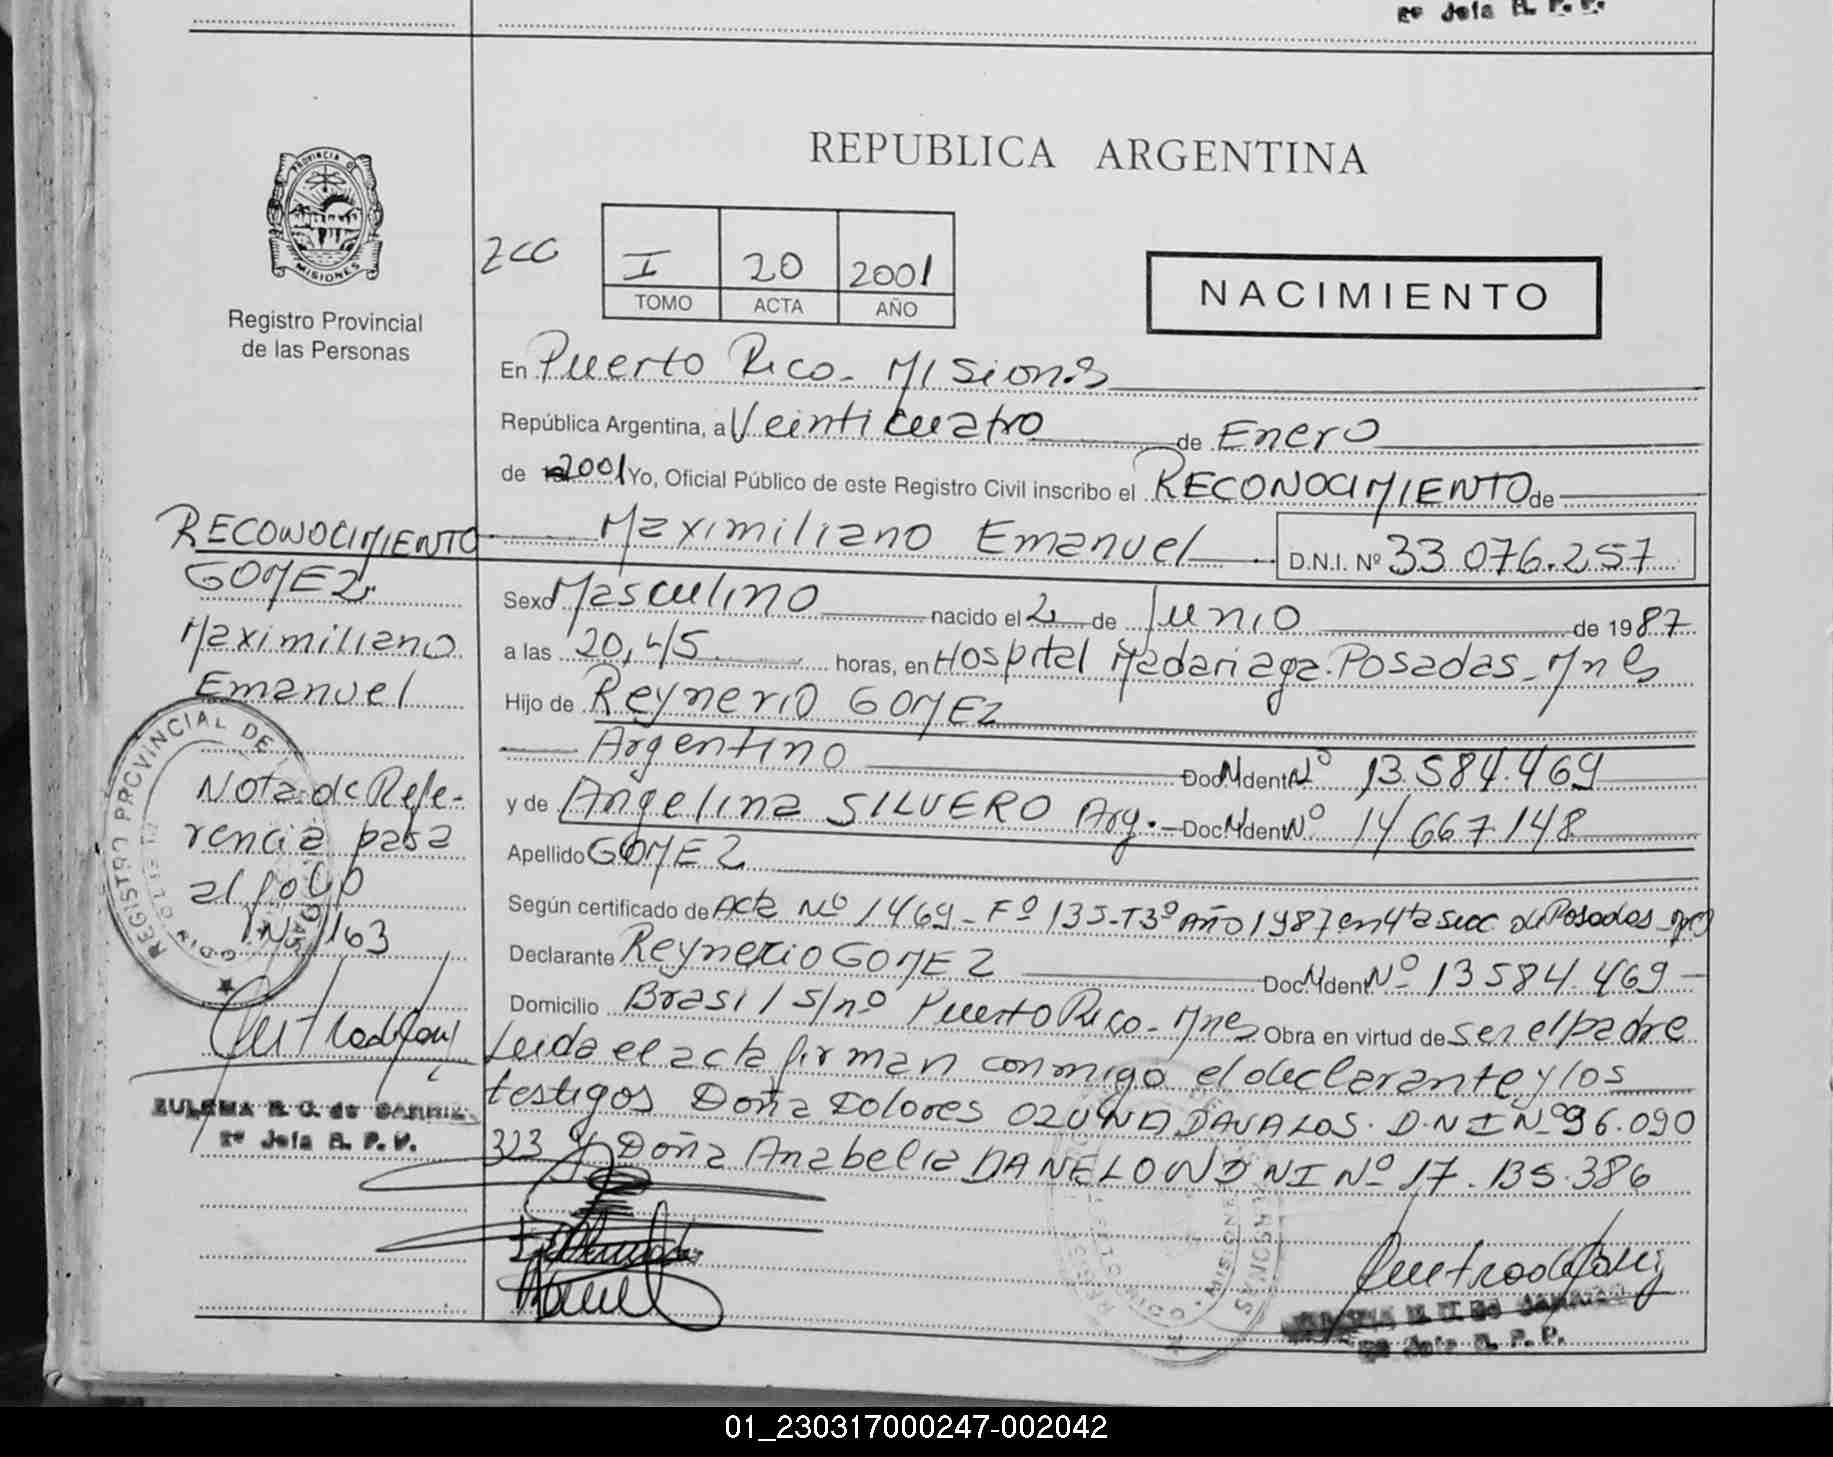 2º Jefa R. P. P.
REPUBLICA ARGENTINA
PROVINCIA DE
MISIONES
Registro Provincial
de las Personas
I 20 2001
TOMO ACTA AÑO
NACIMIENTO
En Puerto Rico - Misiones
República Argentina, a Veinticuatro de Enero
de 2001 Yo, Oficial Público de este Registro Civil inscribo el RECONOCIMIENTO de
Maximiliano Emanuel D.N.I. Nº 33.076.257
Sexo Masculino nacido el 2 de Junio de 1987
a las 20,45 horas, en Hospital Madariaga. Posadas - Mnes
Hijo de Reynerio GOMEZ
Argentino Doc. Ident. Nº 13.584.469
y de Angelina SILVERO Arg. - Doc. Ident. Nº 14.667.148
Apellido GOMEZ
Según certificado de Acta Nº 1469 - Fº 135 - T3º Año 1987 en 4ta Secc de Posadas
Declarante Reynerio GOMEZ Doc. Ident. Nº 13.584.469 -
Domicilio Brasil s/nº Puerto Rico - Mnes Obra en virtud de ser el padre
Leida el acta firman conmigo el declarante y los
testigos Doña Dolores OZUNA DAVALOS. D.N.I Nº 96.090
323 y Doña Anabelia DANELON D NI Nº 17.135.386
RECONOCIMIENTO
GOMEZ
Maximiliano
Emanuel
Nota de Refe-
rencia pasa
al folio
Nº 163
REGISTRO PROVINCIAL DE
2º Jefa R. P. P.
MISIONES
2º Jefa R. P. P.
01_230317000247-002042